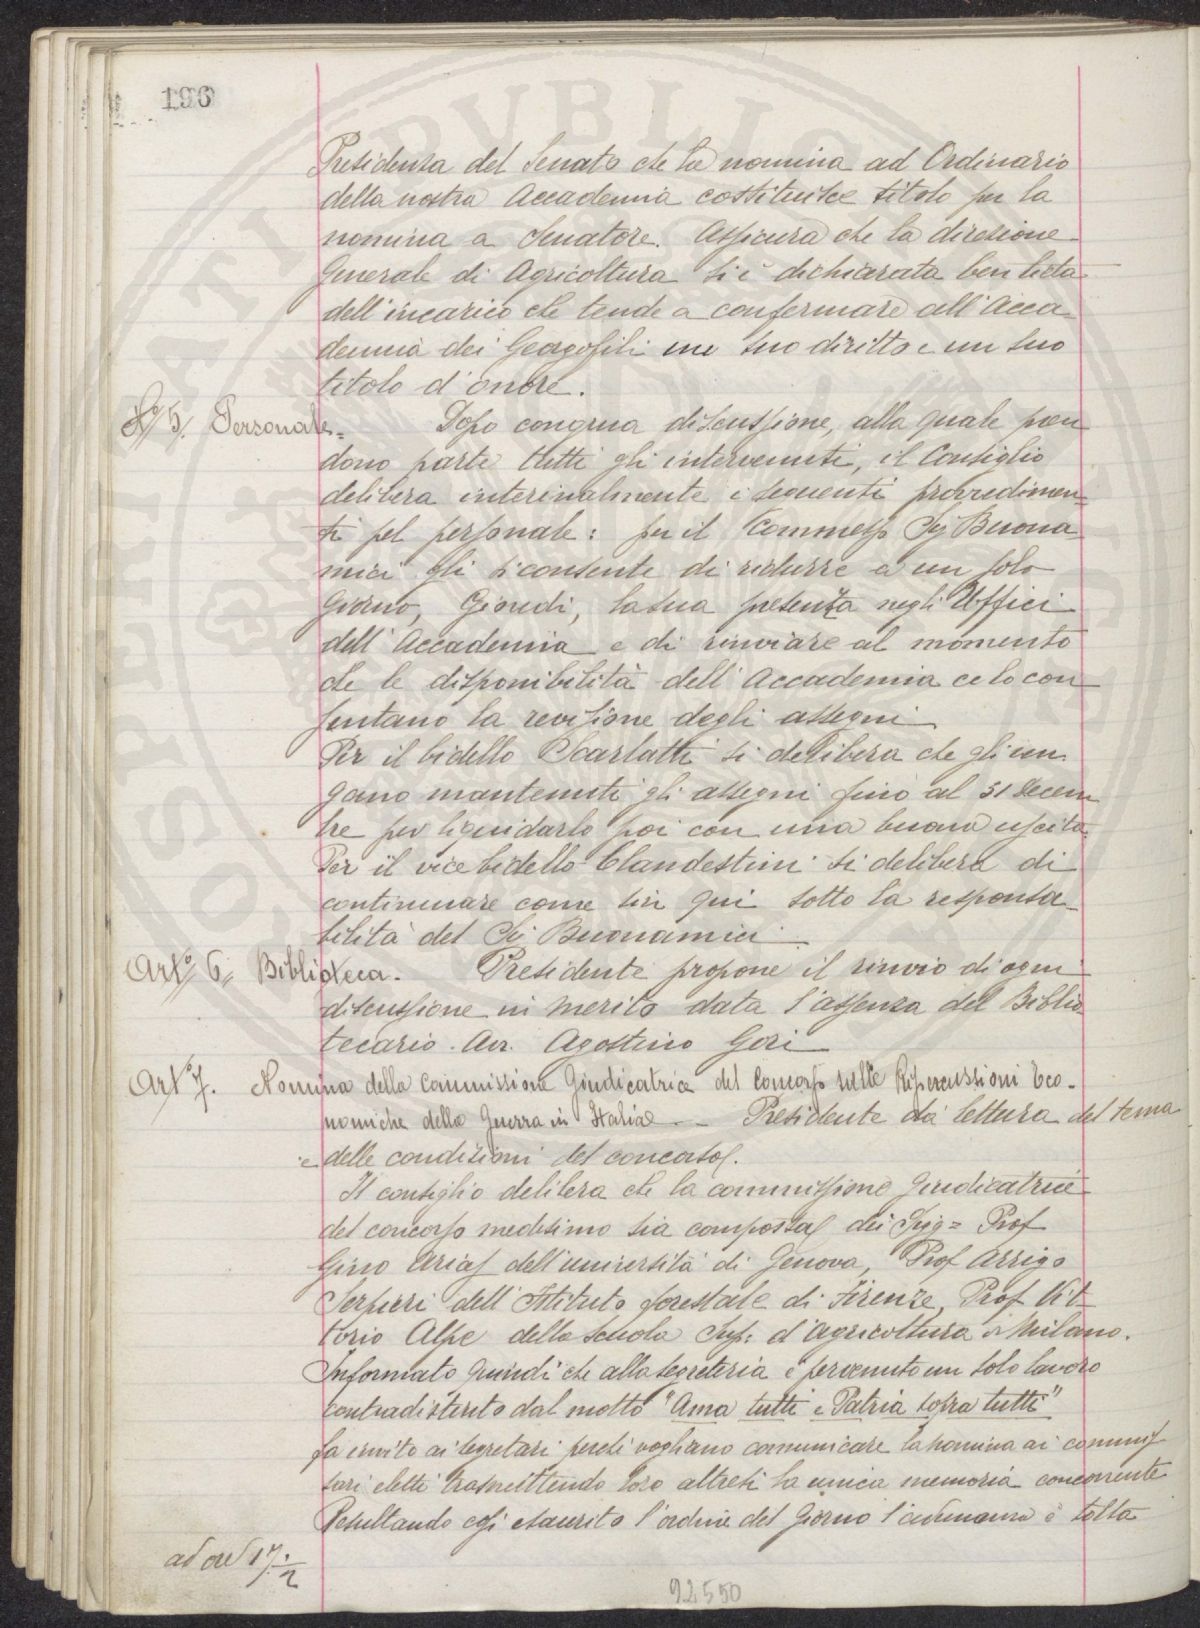 196
Presidenza del Senato che la nomina ad Ordinario
della nostra Accademia costituisce titolo per la
nomina a Senatore. Assicura che la direzione
Generale di Agricoltura si è dichiarata ben lieta
dell'incarico che tende a confermare all'Acca
demia dei Georgofili un suo diritto e un suo
titolo d'onore.
Nº 5. Personale. Dopo congrua discussione, alla quale pren
dono parte tutti gli intervenuti, il Consiglio
delibera interinalmente i seguenti provvedimen=
ti pel personale: per il Commesso Sig Buona
mici gli si consente di ridurre a un solo
giorno, Giovedi, la sua presenza negli Uffici
dell'Accademia e di rinviare al momento
che le disponibilità dell'Accademia ce lo con
sentano la revisione degli assegni
Per il bidello Scarlatti si delibera che gli ven
gano mantenuti gli assegni fino al 31 Decem
bre per liquidarlo poi con una buona uscita.
Per il vice bidello Clandestini si delibera di
continuare come sin qui sotto la responsa
bilità del Sig Buonamici
Artº 6. Biblioteca. Presidente propone il rinvio di ogni
discussione in merito data l'assenza del Biblio
tecario. Avv. Agostino Gori
Artº 7. Nomina della Commissione Giudicatrice del Concorso sulle Ripercussioni Eco-
nomiche della Guerra in Italia. - Presidente dà lettura del tema
e delle condizioni del concorso.
Il consiglio delibera che la commissione giudicatrice
del concorso medesimo sia composta dei Sig= Prof
Gino Arias dell'università di Genova, Prof Arrigo
Serpieri dell'Istituto forestale di Firenze, Prof Vit
torio Alpe della Scuola Sup: d'agricoltura di Milano.
Informato quindi che alla segreteria è pervenuto un solo lavoro
contradistinto dal motto "Ama tutti e Patria sopra tutti"
fa invito ai segretari perchè vogliano comunicare la nomina ai commis
sari eletti trasmettendo loro altresì la unica memoria concorrente
Resultando così esaurito l'ordine del Giorno l'adunanza è tolta
ad ore 17. ½
92550